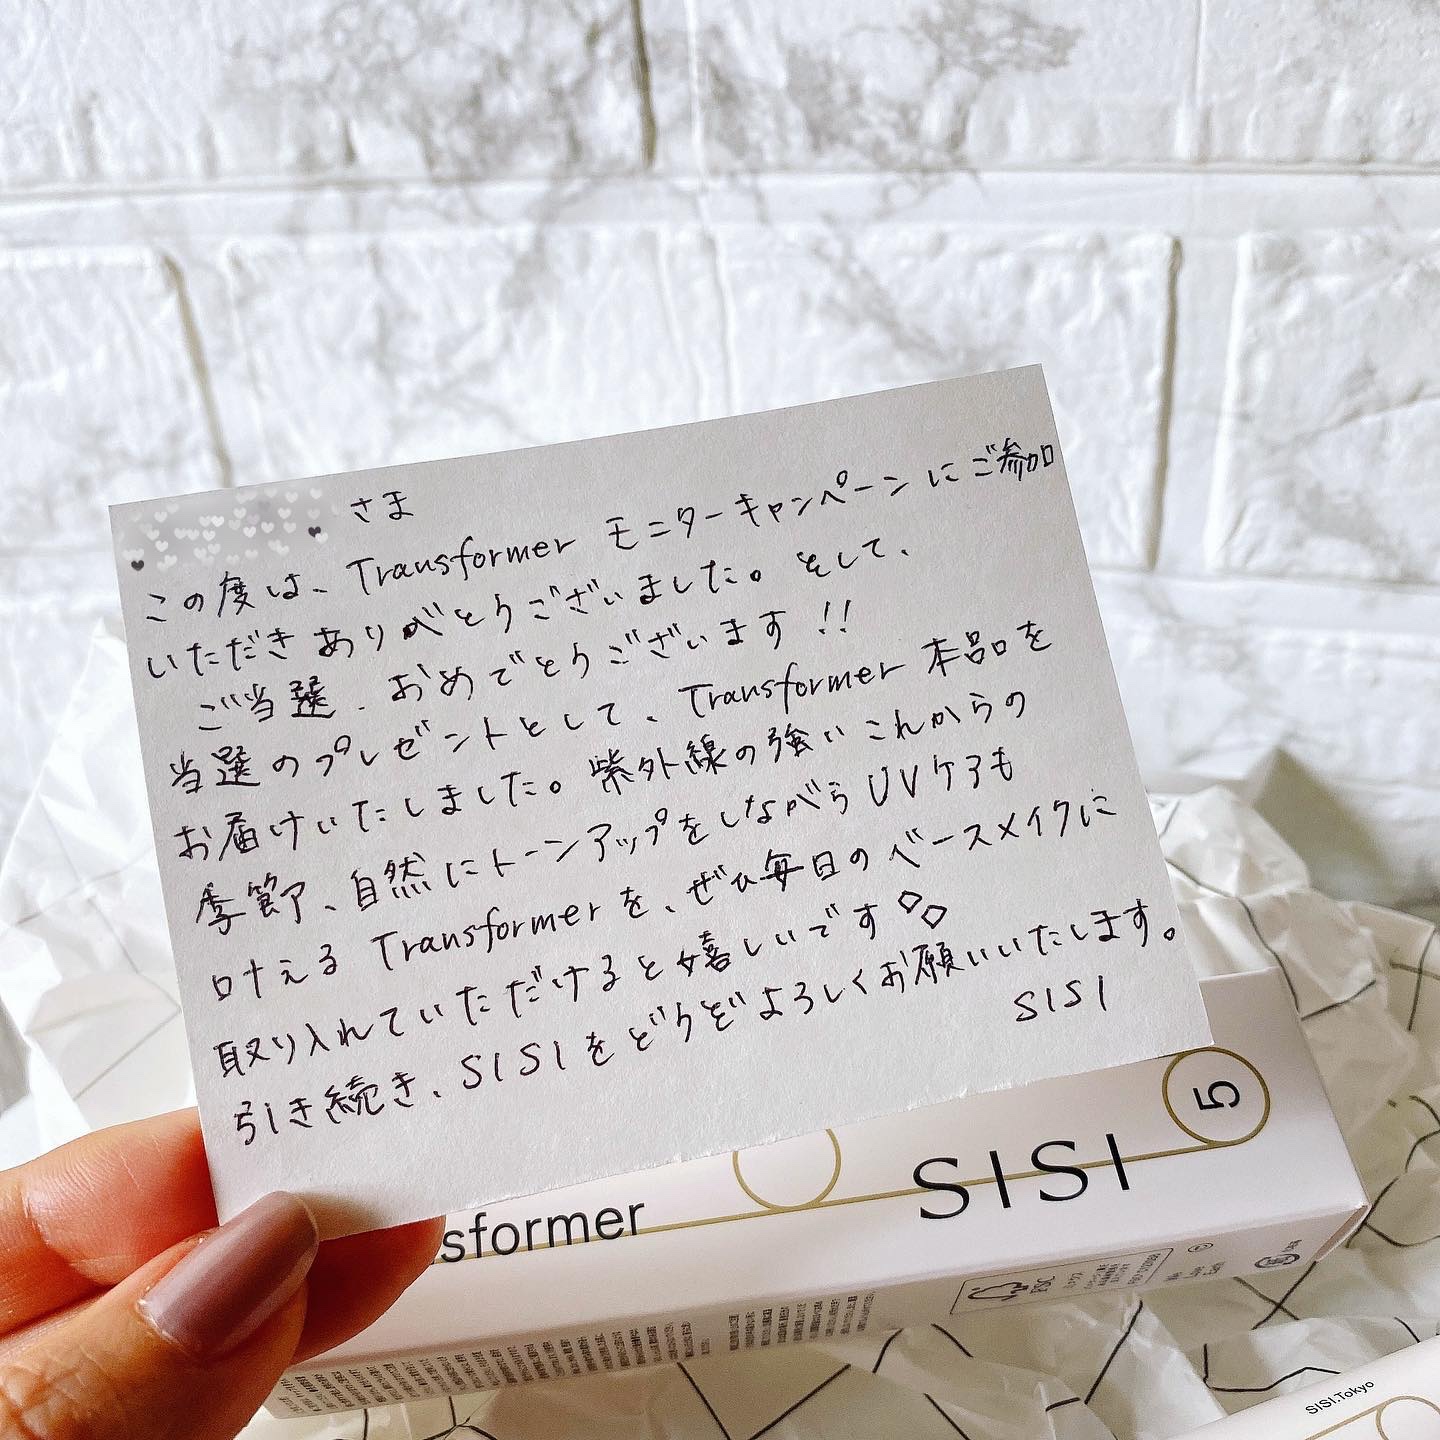 さま
この度は、Transformer モニターキャンペーンにご参加
いただきありがとうございました。そして、
ご当選、おめでとうございます!!
当選のプレゼントとして、Transformer 本品を
お届けいたしました。紫外線の強いこれからの
季節、自然にトーンアップをしながらUVケアも
叶えるTransformerを、ぜひ毎日のベースメイクに
取り入れていただけると嬉しいです◇◇
引き続き、SISIをどうぞよろしくお願いいたします。
SISI
sformer SISI 5
FSC
SISI.Tokyo